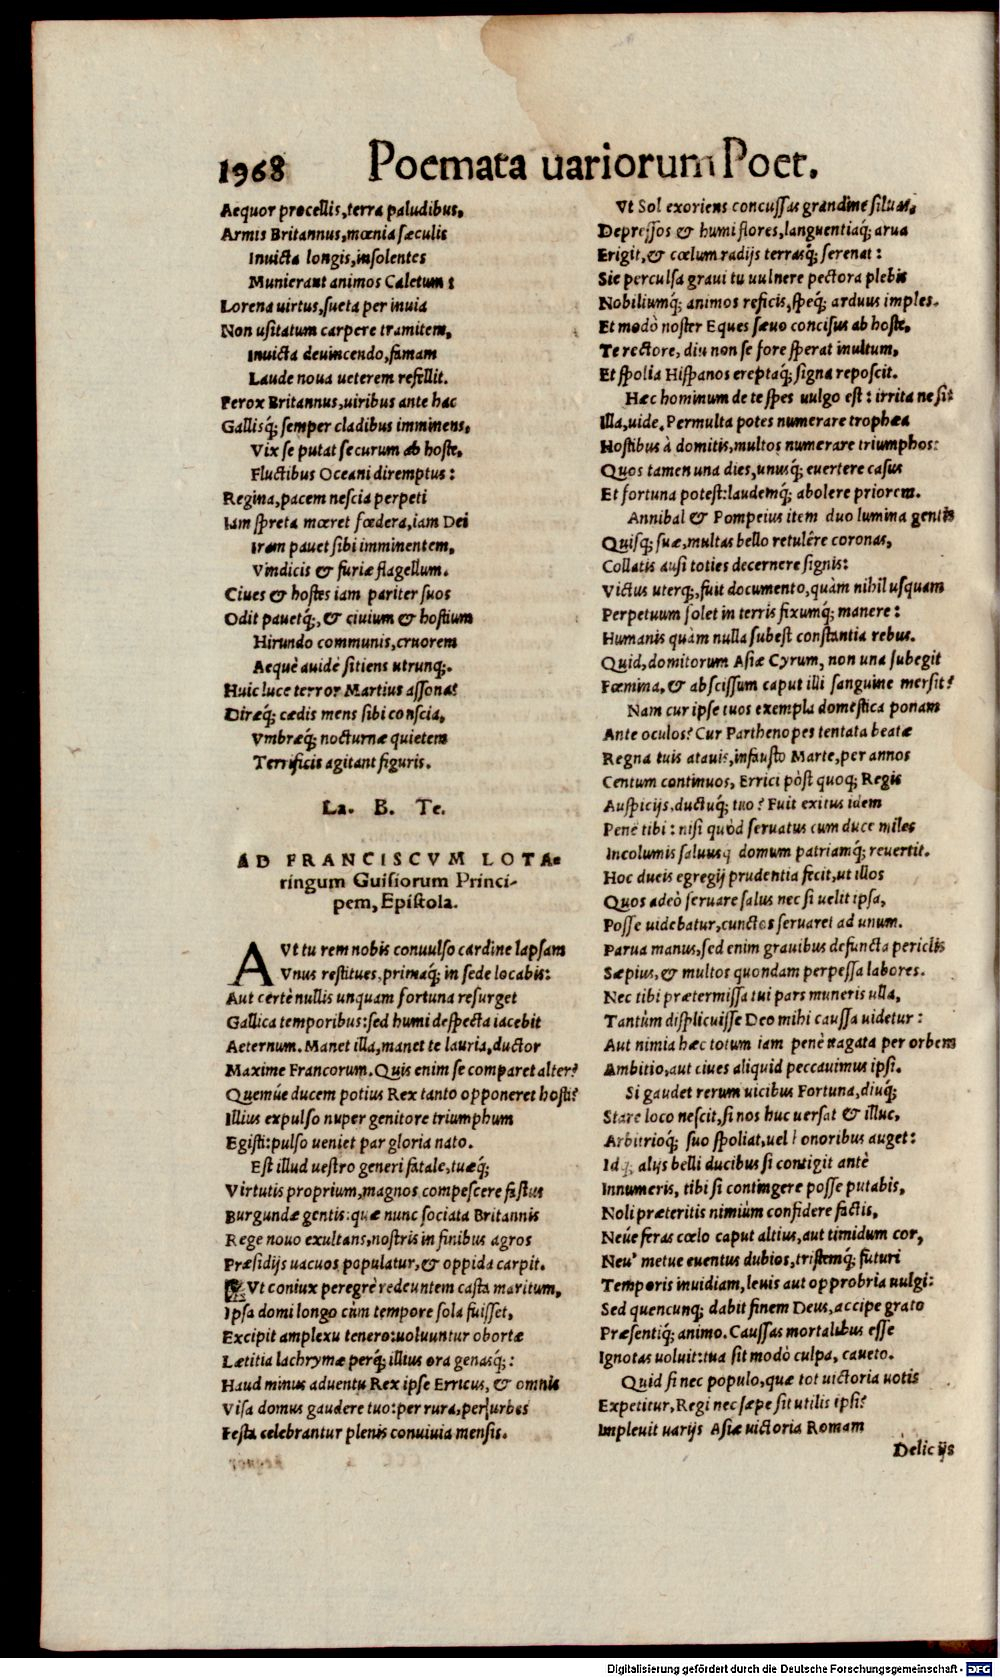 1968 Poemata uariorum Poet.
Aequor procellis, terra paludibus,
Armis Britannus, mœnia sæculis
Inuicta longis, insolentes
Munierant animos Caletum:
Lorena uirtus, sueta per inuia
Non usitatum carpere tramitem,
Inuicta deuincendo, famam
Laude noua ueterem refellit.
Ferox Britannus, uiribus ante hac
Gallisq́; semper cladibus imminens,
Vix se putat securum ab hoste,
Fluctibus Oceani diremptus:
Regina, pacem nescia perpeti
Iam spreta mœret fœdera, iam Dei
Iram pauet sibi imminentem,
Vindicis & furiæ flagellum.
Ciues & hostes iam pariter suos
Odit pauetq́;, & ciuium & hostium
Hirundo communis, cruorem
Aequè auidè sitiens utrunq;.
Huic luce terror Martius assonat
Diræq́; cædis mens sibi conscia,
Vmbræq́; nocturnæ quietem
Terrificis agitant figuris.
La. B. Te.
AD FRANCISCVM LOTA-
ringum Guisiorum Princi-
pem, Epistola.
AVt tu rem nobis conuulso cardine lapsam
Vnus restitues, primaq́; in sede locabis:
Aut certè nullis unquam fortuna resurget
Gallica temporibus: sed humi despecta iacebit
Aeternum. Manet illa, manet te lauria, ductor
Maxime Francorum. Quis enim se comparet alter?
Quemúe ducem potius Rex tanto opponeret hosti?
Illius expulso nuper genitore triumphum
Egisti: pulso ueniet par gloria nato.
Est illud uestro generi fatale, tuæq́;
Virtutis proprium, magnos compescere fastus
Burgundæ gentis: quæ nunc sociata Britannis
Rege nouo exultans, nostris in finibus agros
Præsidijs uacuos populatur, & oppida carpit.
Vt coniux peregrè redeuntem casta maritum,
Ipsa domi longo cùm tempore sola fuisset,
Excipit amplexu tenero: uoluuntur obortæ
Lætitia lachrymæ perq́; illius ora genasq́;:
Haud minus aduentu Rex ipse Erricus, & omnis
Visa domus gaudere tuo: per rura, per urbes
Festa celebrantur plenis conuiuia mensis.
Vt Sol exoriens concussas grandine siluas,
Depressos & humi flores, languentiaq́; arua
Erigit, & cœlum radijs terrasq́; serenat:
Sic perculsa graui tu uulnere pectora plebis
Nobiliumq́; animos reficis, speq́; arduus imples.
Et modò noster Eques sæuo concisus ab hoste,
Te rectore, diu non se fore sperat inultum,
Et spolia Hispanos ereptaq́; signa reposcit.
Hæc hominum de te spes uulgo est: irrita ne sit
Illa, uide. Permulta potes numerare trophæa
Hostibus à domitis, multos numerare triumphos:
Quos tamen una dies, unusq́; euertere casus
Et fortuna potest: laudemq́; abolere priorem.
Annibal & Pompeius item duo lumina gentis
Quisq; suæ, multas bello retulére coronas,
Collatis ausi toties decernere signis:
Victus uterq;, fuit documento, quàm nihil usquam
Perpetuum solet in terris fixumq́; manere:
Humanis quàm nulla subest constantia rebus.
Quid, domitorum Asiæ Cyrum, non una subegit
Fœmina, & abscissum caput illi sanguine mersit?
Nam cur ipse tuos exempla domestica ponam
Ante oculos? Cur Parthenopes tentata beatæ
Regna tuis atauis, infausto Marte, per annos
Centum continuos, Errici pòst quoq; Regis
Auspicijs, ductuq́; tuo? Fuit exitus idem
Penè tibi: nisi quòd seruatus cum duce miles
Incolumis saluusq domum patriamq́; reuertit.
Hoc ducis egregij prudentia fecit, ut illos
Quos adeò seruare salus nec si uelit ipsa,
Posse uidebatur, cunctos seruaret ad unum.
Parua manus, sed enim grauibus defuncta periclis
Sæpius, & multos quondam perpessa labores.
Nec tibi prætermissa tui pars muneris ulla,
Tantùm displicuisse Deo mihi caussa uidetur:
Aut nimia hæc totum iam penè uagata per orbem
Ambitio, aut ciues aliquid peccauimus ipsi.
Si gaudet rerum uicibus Fortuna, diuq́;
Stare loco nescit, si nos huc uersat & illuc,
Arbitrioq́; suo spoliat, uel honoribus auget:
Idq; alijs belli ducibus si contigit antè
Innumeris, tibi si contingere posse putabis,
Noli præteritis nimiùm confidere factis,
Neúe feras cœlo caput altius, aut timidum cor,
Neu' metue euentus dubios, tristemq́; futuri
Temporis inuidiam, leuis aut opprobria uulgi:
Sed quencunq; dabit finem Deus, accipe grato
Præsentiq́; animo. Caussas mortalibus esse
Ignotas uoluit: tua sit modò culpa, caueto.
Quid si nec populo, quæ tot uictoria uotis
Expetitur, Regi nec sæpe sit utilis ipsi?
Impleuit uarijs Asiæ uictoria Romam
Delicijs
Digitalisierung gefördert durch die Deutsche Forschungsgemeinschaft - DFG